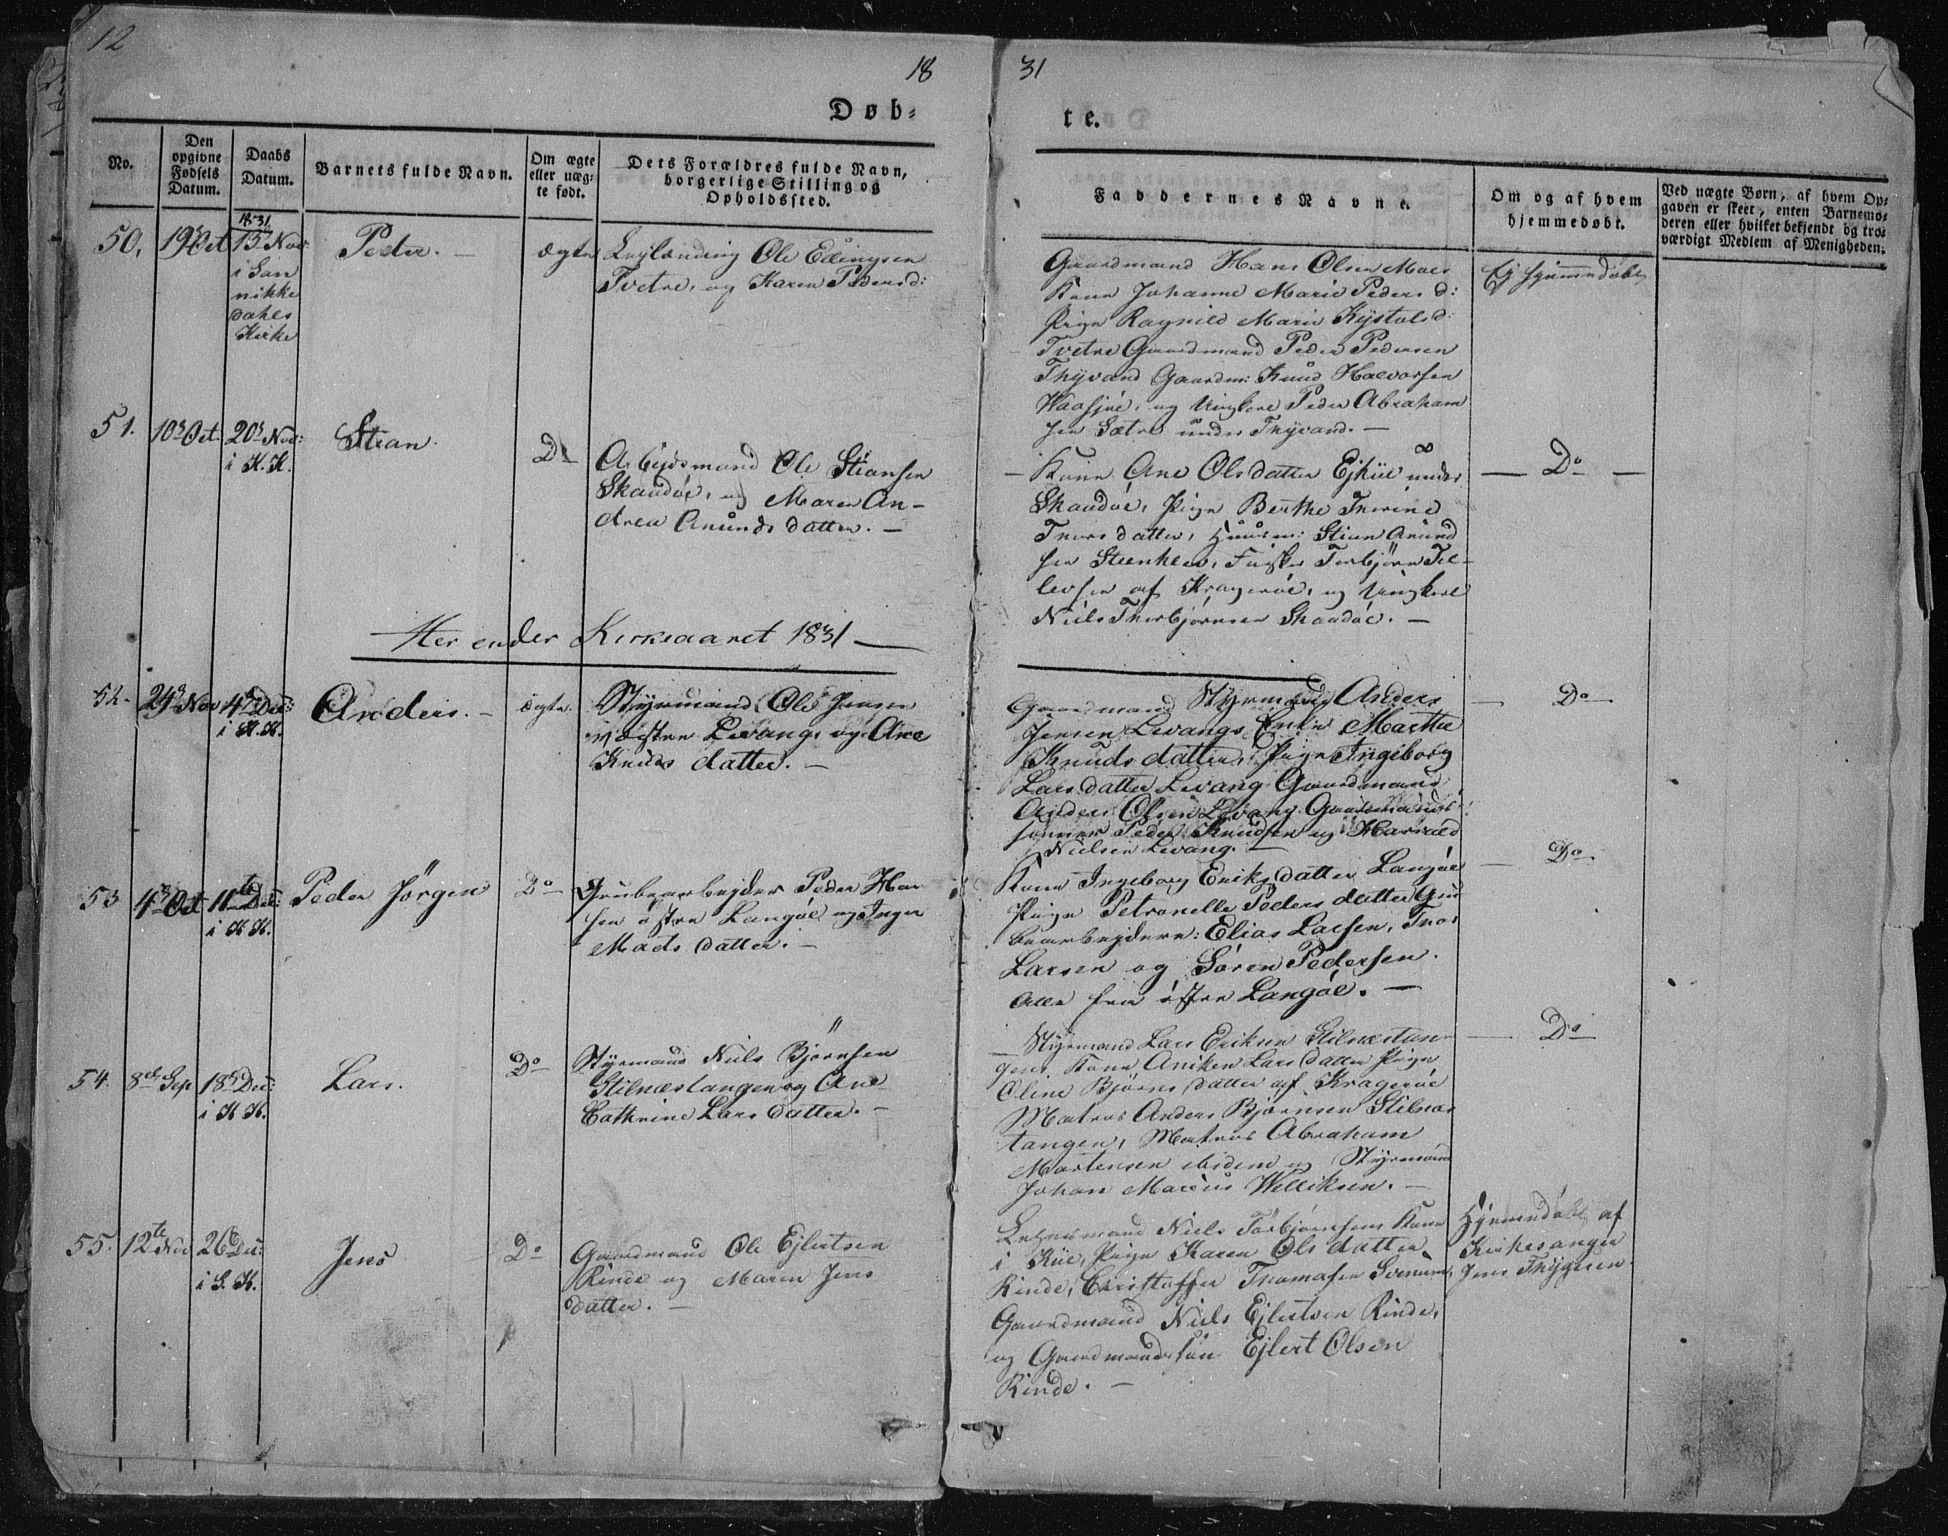 12
18
31
Døb-
te.
No.
Den opgivne Fødsels Datum.
Daabs Datum.
Barnets fulde Navn.
Om ægte eller uægte født.
Dets Forældres fulde Navn, borgerlige Stilling og Opholdssted.
Faddernes Navne.
Om og af hvem hjemmedøbt.
Ved uægte Børn, af hvem Opgaven er skeet, enten Barnemoderen eller hvilket bekjendt og troværdigt Medlem af Menigheden.
50.
19 Oct
1831
13 Nov:
i San
nikke
dahls
Kirke
Peder. —
ægte
Leylænding Ole Ellingsen
Tvetre, og Karen Pedersd:
Gaardmand Hans Olsen Moes
Kone Johanne Marie Pedersd:
Pige Ragnild Marie Kystolsd:
Tvetre Gaardmand Peder Pedersen
Thyvand Gaardm: Knud Halvorsen
Waasjøe, og Ungkarl Peder Abraham
sen Sætre under Thyvand. —
Ej hjemmedøbt
51.
10 Oct.
20 Nov:
i K. K.
Stian.
Do
Arbejdsmand Ole Stiansen
Skaadøe, og Maren An-
drea Anunds datter. —
— Kone Ane Olsdatter Ejkiie under
Skaadøe, Pige Berthe Therine
Thors datter, Huusm: Stian Anund
sen Steenklev, Fisker Torbjørn Tel-
levsen af Kragerøe, og Ungkarl
Niels Thorbjørnsen Skaadøe. —
— Do —
Her ender Kirkeaaret 1831 —
52.
24 Nov
4 Dec:
i K. K.
Anders. —
ægte.
Styrmand Ole Jensen
væstre Levang, og Ane
Knuds datter. —
Gaardmand Styrmand Anders
Jensen Levangs Enke Marthe
Knuds datter, Pige Ingeborg
Lars datter Levang Gaardmand
Anders Olsen Levang Gaardmands
sønner Peder Knudsen og Harrald
Nielsen Levang. —
— Do —
53
4 Oct
11te Dec:
i K K.
Peder Jörgen
Do
Grubearbejder Peder Han
sen østre Langøe og Inger
Mads datter. —
Kone Ingeborg Eriks datter Langøe
Pige Petronelle Peders datter Gru
bearbejdere: Elias Larsen, Thor
Larsen og Sören Pedersen.
Alle fra østre Langøe. —
— Do
54.
8de Sep
18 Dec:
i K K.
Lars.
Do
Styrmand Niels Bjørnsen
Stilnæstangen og Ane
Cathrine Lars datter. —
— Styrmand Lars Eriksen Stilnæstan
gen, Kone Aniken Lars datter Pige
Oline Bjørns datter af Kragerøe
Matros Anders Bjørnsen Stilnæs
tangen, Matros Abraham
Mortensen ibidem og Styrmand
Johan Marius Williksen. —
— Do
55.
12te Nov
26 Dec:
i S. K.
Jens
Do
Gaardmand Ole Ejlertsen
Rinde og Maren Jens
datter. —
Lehnsmand Niels Torbjørnsens Kone
i Kiie, Pige Karen Ols datter
Rinde, Christoffer Thomasen
Gaardmand Niels Ejlertsen Rinde,
og Gaardmandssøn Ejlert Olsen
Rinde. —
Hjemmedøbt af
Kirkesanger
Jens Thygesen.